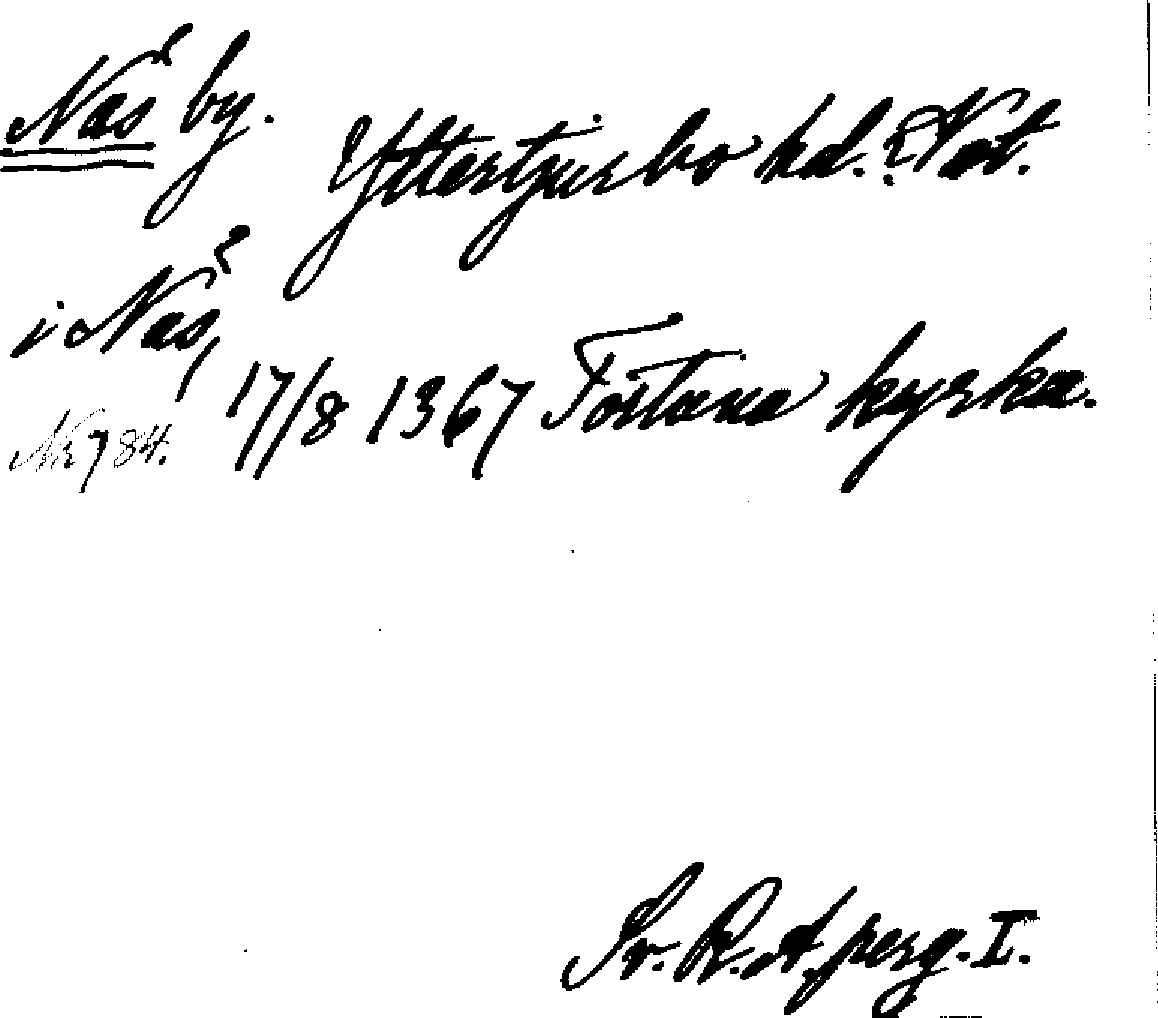 Näs by. Yttertjurbo hd.? Väst.
i Näs, 17/8 1367 Tortuna kyrka.
№ 784.
Sv. R. A. perg. I.